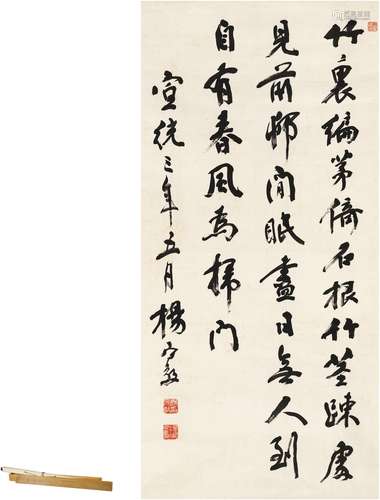 竹裏編茅倚石根竹莖踈處
見前邨閒眠盡日無人到
自有春風為掃門
宣統三年五月楊守敬